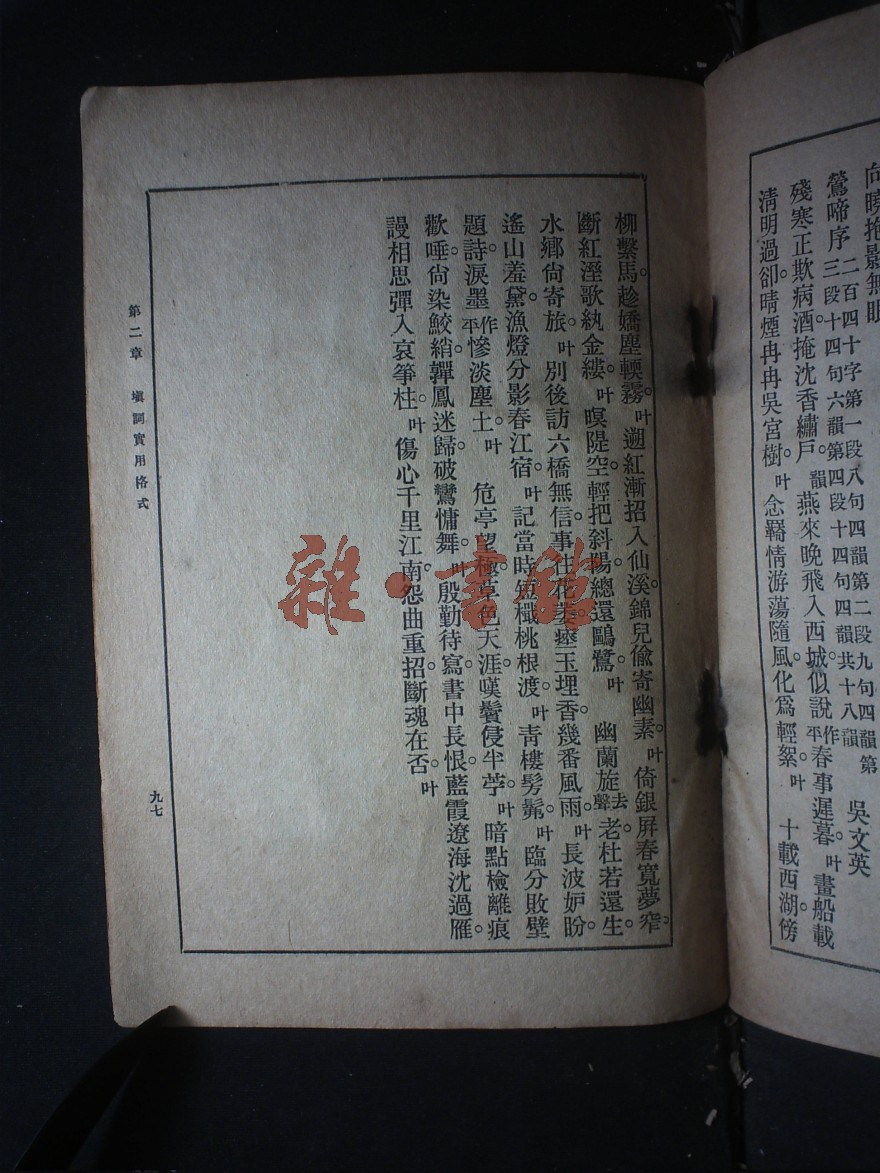 向曉抱影無眠
鶯啼序 二百四十字第一段八句四韻第二段九句四韻第三段十四句六韻第四段十四句四韻共十八韻 吳文英
殘寒正欺病酒。掩沈香繡戶。韻燕來晚。飛入西城。似說作平春事遲暮。叶畫船載
淸明過卻。晴煙冉冉吳宮樹。叶念羇情游蕩。隨風化爲輕絮。叶 十載西湖。傍
柳繫馬。趁嬌塵輭霧。叶遡紅漸。招入仙溪。錦兒偸寄幽素。叶倚銀屏。春寬夢窄。
斷紅溼。歌紈金縷。叶暝隄空。輕把斜陽。總還鷗鷺。叶 幽蘭旋去聲老。杜若還生。
水鄉尙寄旅。叶別後訪。六橋無信。事往花萎。瘞玉埋香。幾番風雨。叶長波妒盼。
遙山羞黛。漁燈分影春江宿。叶記當時。短檝桃根渡。叶靑樓髣髴。叶臨分敗壁
題詩。淚墨作平慘淡塵土。叶 危亭望極。草色天涯。嘆鬢侵半苧。叶暗點檢。離痕
歡唾。尙染鮫綃。嚲鳳迷歸。破鸞慵舞。叶殷勤待寫。書中長恨。藍霞遼海沈過雁。
謾相思。彈入哀箏柱。叶傷心千里江南。怨曲重招。斷魂在否。叶
第二章 塡詞實用格式
九七
雜·書館